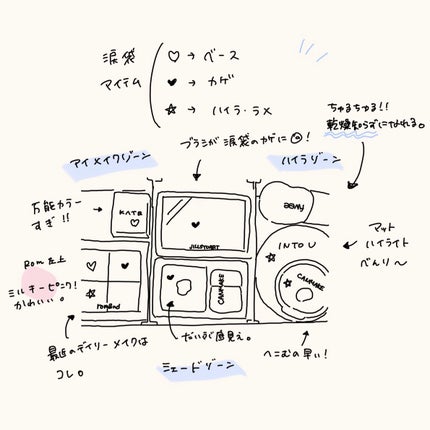 涙袋
アイテム
♡ → ベース
♥ → カゲ
☆ → ハイラ・ラメ
ちゅるちゅる!!
乾燥知らずになれる。
ブラシが涙袋のカゲに◎!
アイメイクゾーン
ハイラゾーン
万能カラー
すぎ!!
KATE
JILLSTUART
AWBE
INTO U
マット
ハイライト
べんり〜
Rom 左上
ミルキーピンク!
かわいい。
rom&nd
CANMAKE
CANMAKE
最近のデイリーメイクは
コレ。
だいぶ底見え。
シェードゾーン
へこむの早い!